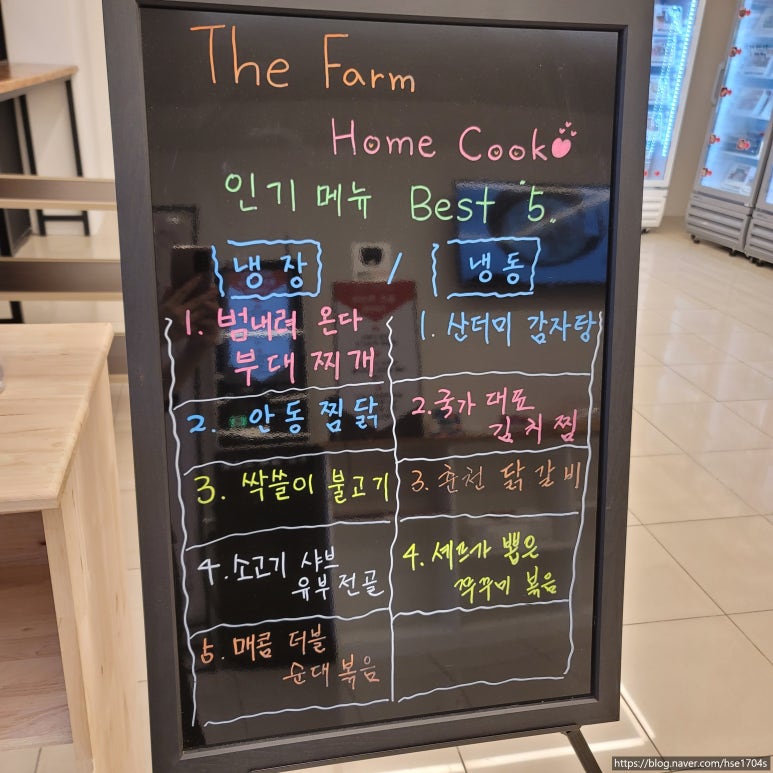 The Farm
Home Cook
인기 메뉴 Best 5
냉장 / 냉동
1. 범내려 온다
부대찌개
2. 안동찜닭
3. 싹쓸이 불고기
4. 소고기 샤브
유부전골
5. 매콤 더블
순대볶음
1. 산더미 감자탕
2. 국가대표
김치찜
3. 춘천 닭갈비
4. 셰프가 뽑은
쭈꾸미 볶음
https://blog.naver.com/hse1704s